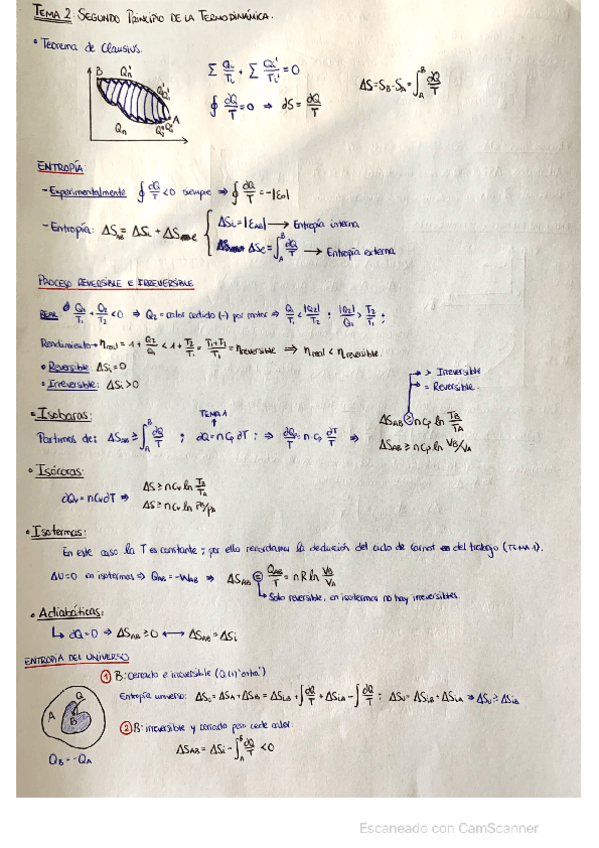 TEMA 2: SEGUNDO PRINCIPIO DE LA TERMODINÁMICA.
• Teorema de Clausius.
B Qn' Q2' Q1' A Qn Q2 Q1
∑ Qi/Ti + ∑ Qi'/Ti' = 0
∮ ∂Q/T = 0 ⇒ ∂S = ∂Q/T
ΔS = S_B - S_A = ∫_A^B ∂Q/T
ENTROPÍA:
- Experimentalmente ∮ ∂Q/T < 0 siempre ⇒ ∮ ∂Q/T = -|εAB|
- Entropía: ΔS_AB = ΔSi + ΔSe { ΔSi = |εAB| → Entropía interna
ΔSe = ∫_A^B ∂Q/T → Entropía externa
PROCESO REVERSIBLE E IRREVERSIBLE
REAL Q1/T1 + Q2/T2 < 0 ⇒ Q2 = calor cedido (-) por motor ⇒ Q1/T1 < |Q2|/T2 ; |Q2|/Q1 > T2/T1 ;
Rendimiento → η real = 1 + Q2/Q1 < 1 + T2/T1 = = η reversible ⇒ η real < η reversible.
• Reversible: ΔSi = 0
• Irreversible: ΔSi > 0
> Irreversible
= Reversible.
• Isobaras:
TEMA 1
Partimos de: ΔS_AB ≥ ∫_A^B ∂Q/T ; ∂Q = n Cp ∂T ; ⇒ ∂Q/T = n·Cp ∂T/T ⇒ ΔS_AB ≥ n Cp ln T_B/T_A
ΔS_AB ≥ n Cp ln V_B/V_A
• Isócoras:
∂Qv = n Cv ∂T ⇒ ΔS ≥ n Cv ln T_B/T_A
ΔS ≥ n Cv ln P_B/P_A
• Isotermas:
En este caso la T es constante ; por ello recordamos la deducción del ciclo de Carnot en del trabajo (TEMA 1).
ΔU = 0 en isotermas ⇒ Q_AB = -W_AB ⇒ ΔS_AB = Q_AB/T = n R ln V_B/V_A
↳ Solo reversible, en isotermas no hay irreversibles
• Adiabáticas:
↳ ∂Q = 0 ⇒ ΔS_AB ≥ 0 ⟷ ΔS_AB = ΔSi
ENTROPÍA DEL UNIVERSO
① B: cerrado e irreversible
A Q B
Entropía universo: ΔSu = ΔS_A + ΔS_B = ΔSi,B + ∫ ∂Q/T + ΔSi,A - ∫ ∂Q/T ; ΔSu = ΔSi,B + ΔSi,A ⇒ ΔSu ≥ ΔSi,B
② B: irreversible y cerrado pero cede calor:
ΔS_AB = ΔSi - ∫_A^B ∂Q/T < 0
Q_B = -Q_A
Escaneado con CamScanner